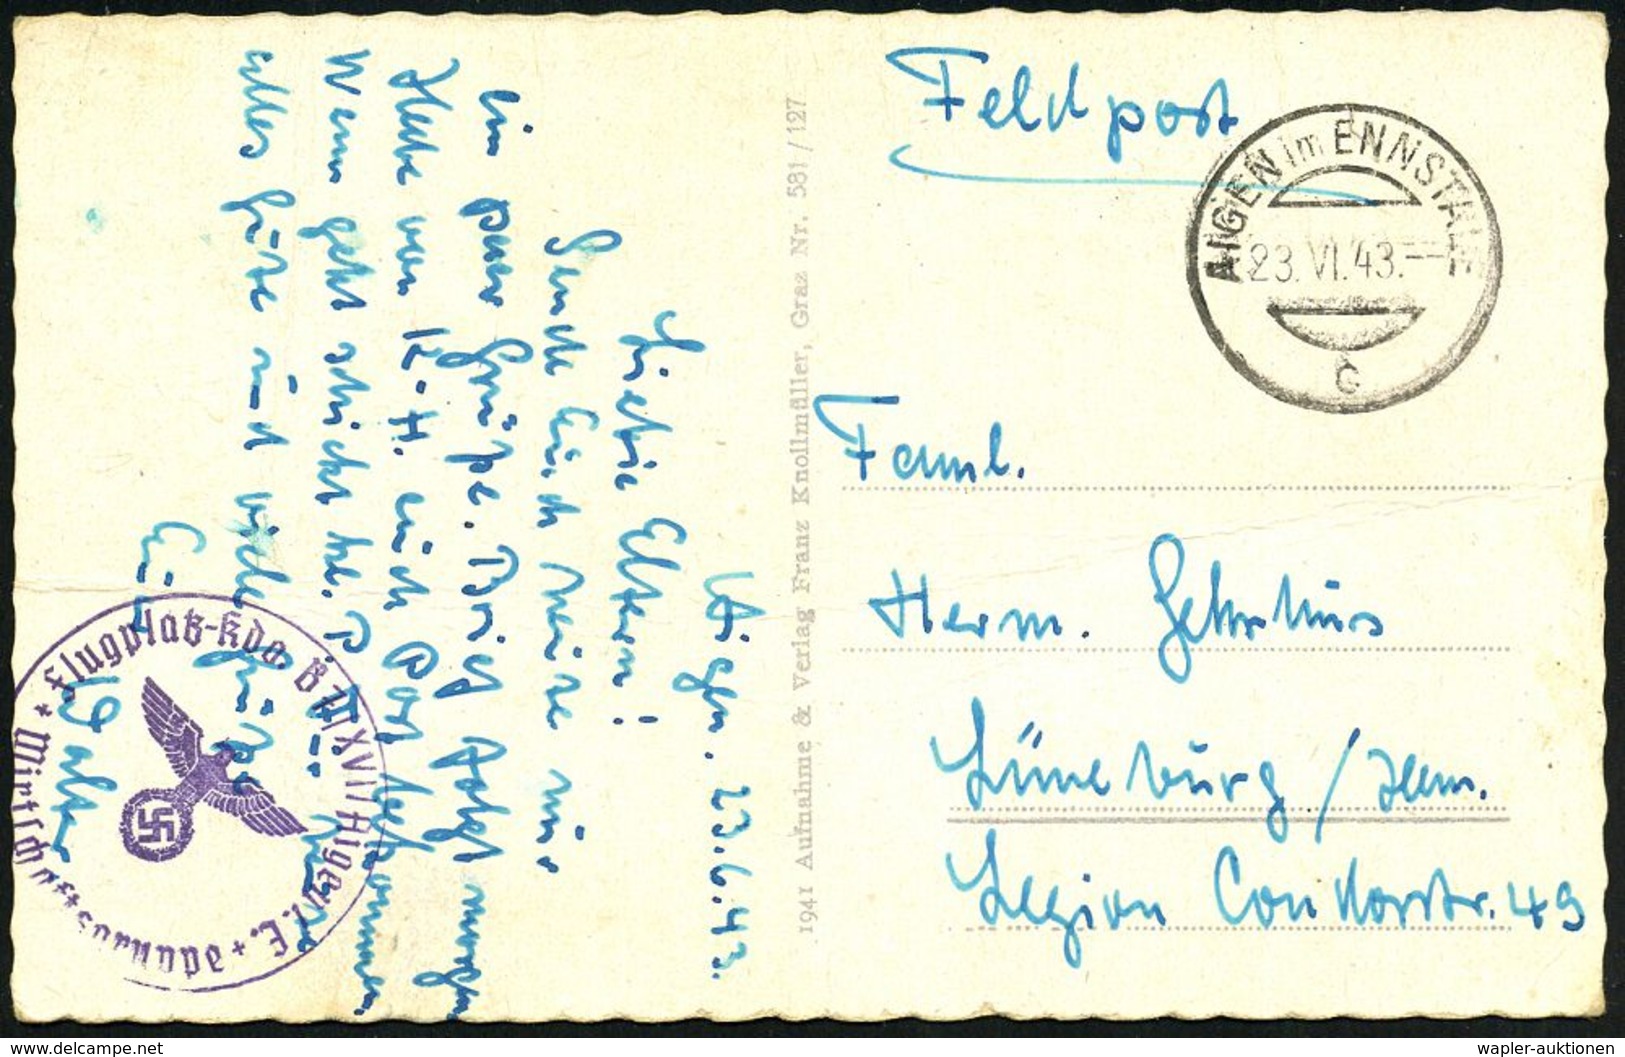 Feldpost
AIGEN im ENNSTALE
23. VI. 43.--
c
Faml.
Herm.
Lüneburg / Hann.
Legion Condorstr. 49
1941 Aufnahme & Verlag Franz Knollmüller, Graz Nr. 581 / 127
Aigen. 23.6.43.
Liebe Eltern!
Sende Euch heute nur
Ein paar Grüße. Brief folgt morgen
Habe von K.H. auch Post bekommen
Wenn geht schickt be. P.
alles Gute und viele Grüße
Euer
Walter
* Flugplatz-Kdo. B XVII/Aigen i. E. *
Wirtschaftsgruppe
delcampe.net
wapler-auktionen